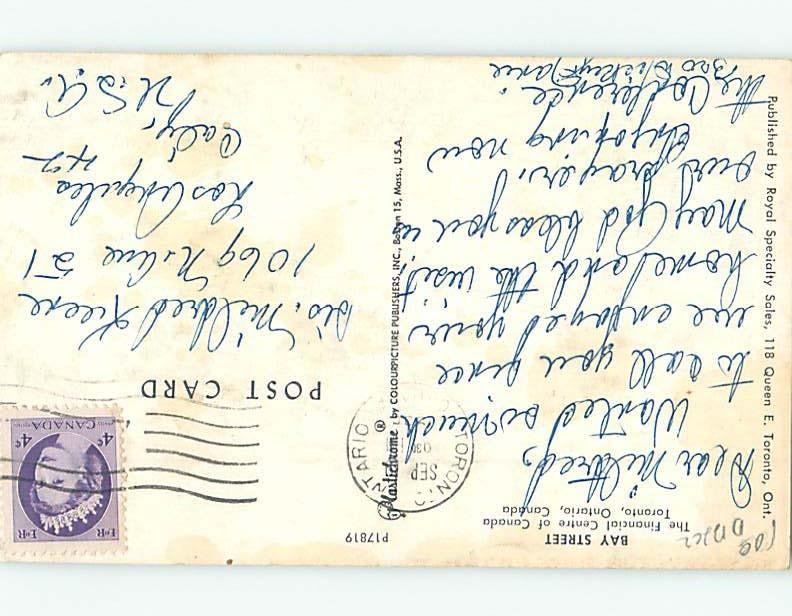 BAY STREET
The Financial Centre of Canada
Toronto, Ontario, Canada
P17819
Dear Mildred,
Wanted so much
to call you since
we enjoyed your
home and the visit.
May God bless you is
our prayer.
Enjoying now
the Conference.
Published by Royal Specialty Sales, 118 Queen E. Toronto, Ont.
Plastichrome ® by COLOURPICTURE PUBLISHERS, INC., Boston 15, Mass., U.S.A.
POST CARD
TORONTO
ONTARIO
SEP
E II R
4¢ 4¢
POSTES CANADA POSTAGE
Sis. Mildred Keene
1069 N. Ave 51
Los Angeles
42
Calif.
U.S.A.